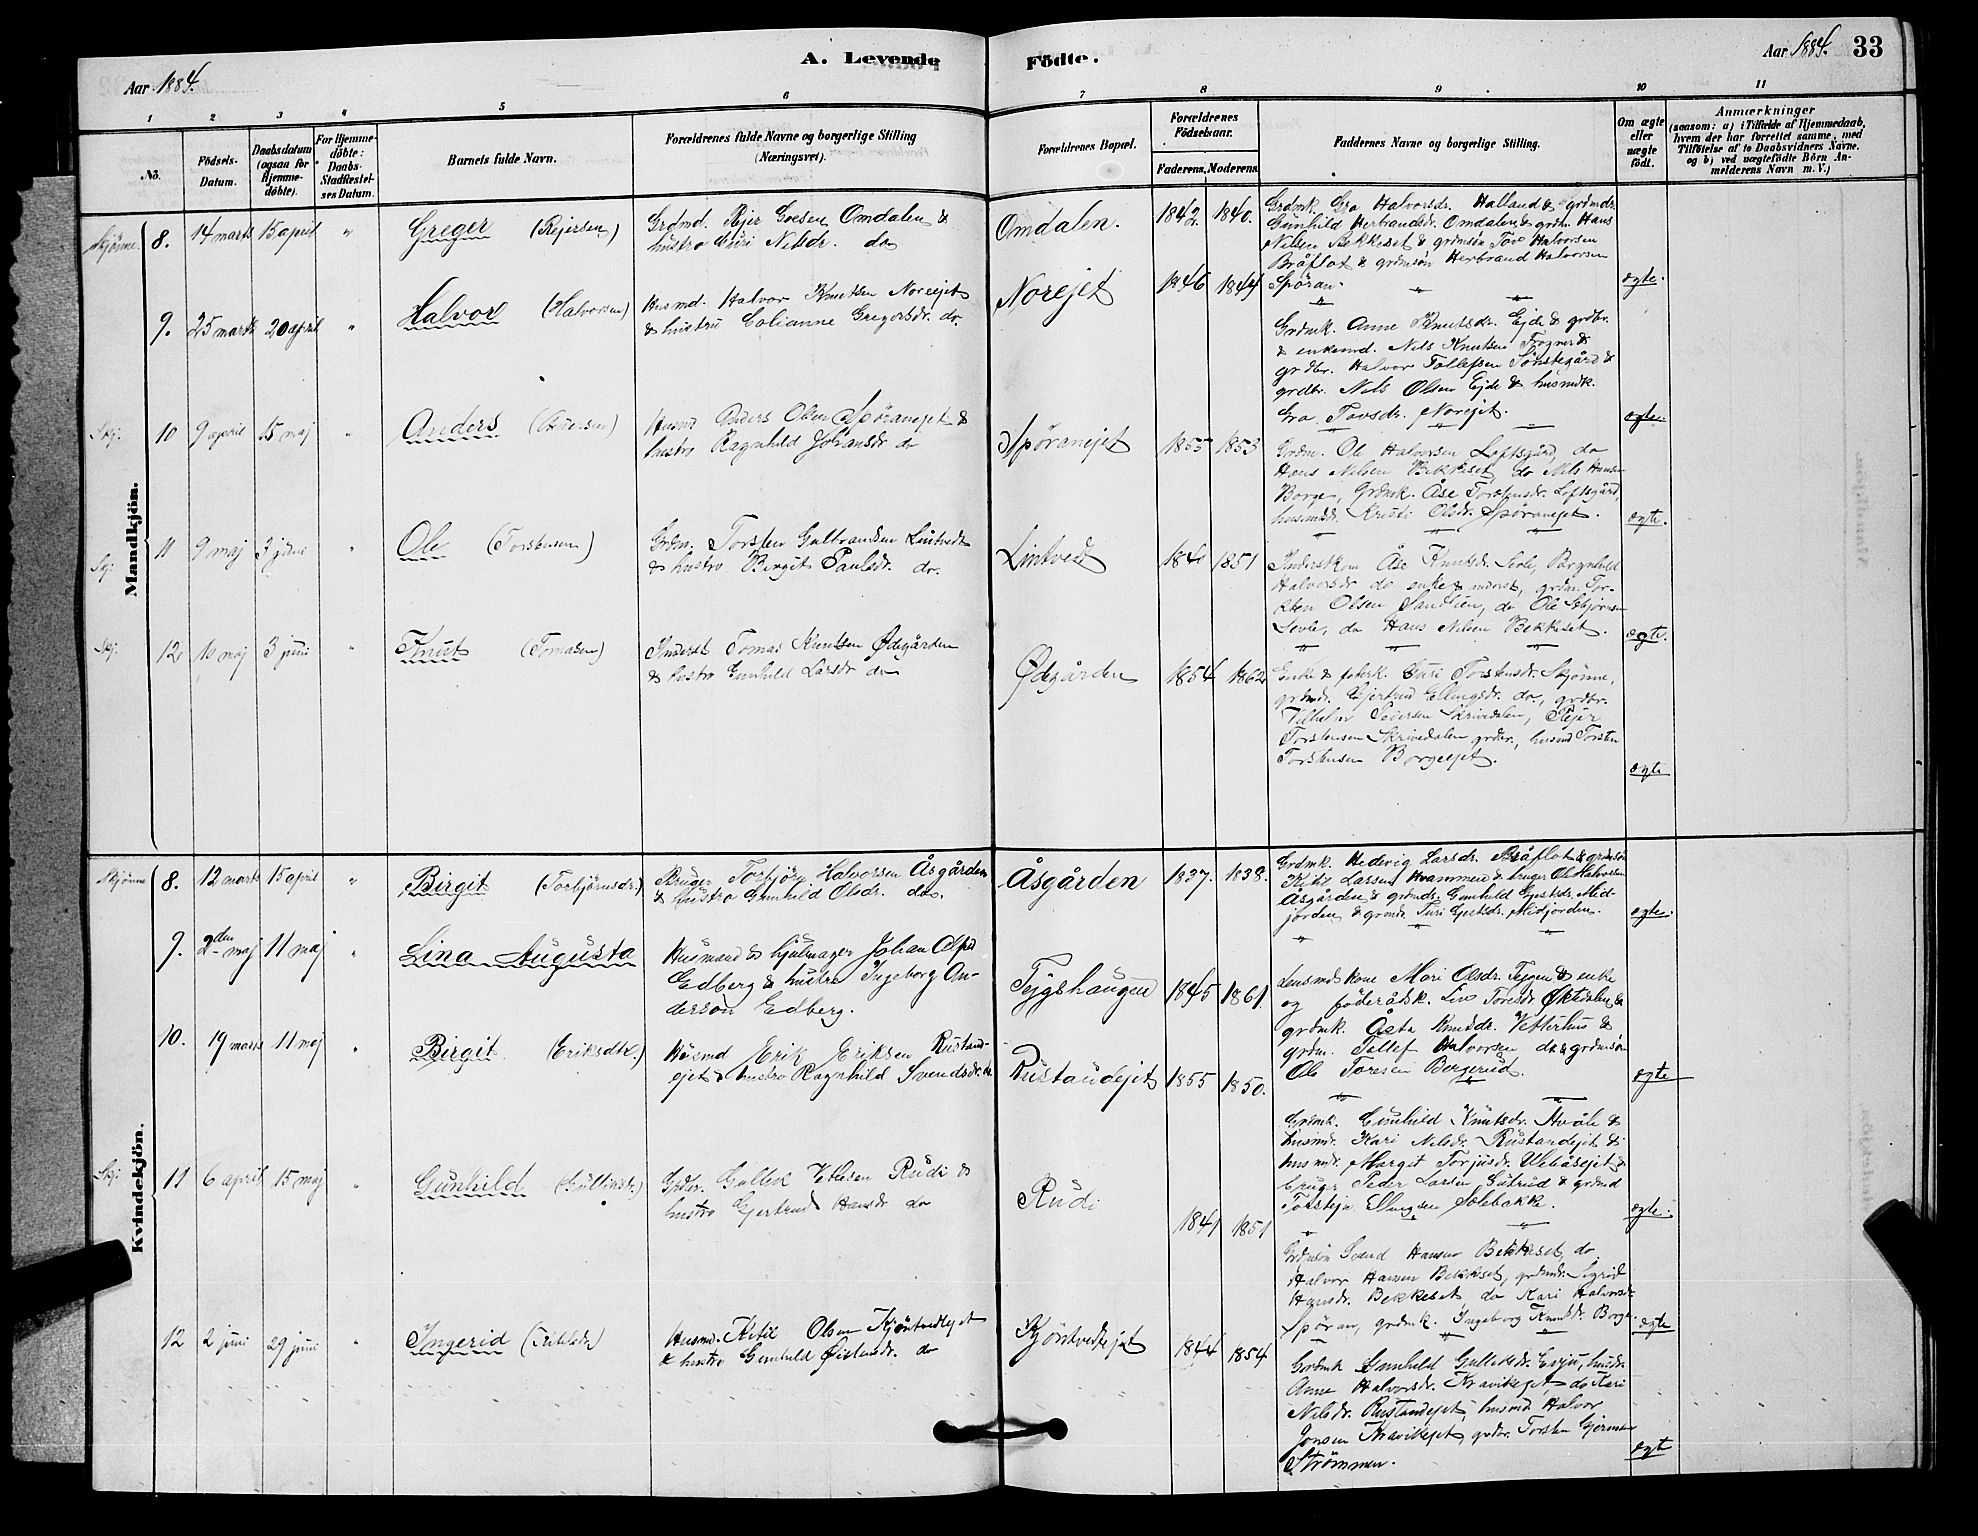 A. Levende Födte.
Aar 1884.
Aar 1884. 33
1 2 3 4 5 6 7 8 9 10 11
No.
Födsels-Datum.
Daabsdatum (ogsaa for Hjemme-döbte).
For Hjemme-döbte: Daabs-Stadfæstel-ses Datum.
Barnets fulde Navn.
Forældrenes fulde Navne og borgerlige Stilling (Næringsvei).
Forældrenes Bopæl.
Forældrenes Födselsaar.
Faderens. Moderens.
Faddernes Navne og borgerlige Stilling.
Om ægte eller uægte født.
Anmærkninger
(saasom: a) i Tilfælde af Hjemmedaab,
hvem der har forrettet samme, med
Tilföielse af to Daabsvidners Navne.
og b) ved uægtefödte Börn An-
melderens Navn m. V.)
Mandkjön.
Skjønne 8. 14 marts 15 april " Greger (Rejersen)
Grdmd. Rejer Goesen Omdalen &
hustro Guri Nilsdr. do
Omdalen. 1842. 1840.
Grdmk. Gro Halvorsdr. Halland & grdmdr.
Gunhild Herbrandsdr. Omdalen & grdm. Hans
Nilsen Bekkeset & grdmsön Tov Halvorsen
Bråflot & grdmsön Herbrand Halvorsen
Spöran.
ægte.
9. 25 marts 20 april " Halvor (Halvorsen)
Husmd. Halvor Knutsen Norejet
& hustru Golianne Gregersdr. do.
Norejet 1846 1844
Grdmk. Anne Knutsdr. Ejde & grdbr.
& enkemd. Nils Knutsen Fogner &
grdbr. Halvor Tollefsen Sönstegård &
grdbr. Nils Olsen Ejde & husmdk.
Gro Tovsdr. Norejet.
ægte.
Skj. 10 9 april 15 maj " Anders (Andersen)
Husmd Anders Olsen Spöranejet &
hustro Ragnhild Johansdr do
Spöranejet 1855 1853
Grdm. Ole Halvorsen Loftsgård, do
Hans Nilsen Bekkeset, do Nils Hansen
Borge, Grdmk. Åse Torstensdr. Loftsgård,
husmdr. Kristi Olsdr. Spöranejet.
ægte.
Skj. 11 9 maj 3 juni " Ole (Torstensen)
Grdm. Torsten Gulbrandsen Lintvedt
& hustro Birgit Paulsdr. do.
Lintvedt 1851
Inderstkone Åse Knutsdr. Sevle, Ragnhild
Halvorsdr do enke & inderst, grdm. Tor-
sten Olsen Sandlien, do Ole
Sevle, do Hans Nilsen Bekkeset.
ægte.
Skj. 12 10 maj 3 juni " Knut (Tomasen)
Inderst Tomas Knutsen Ødegården
& hustro Gunhild Larsdr do
Ødegården 1854 1862
Enke & foterk. Guri Torstensdr. Skjönne,
grdmdr. Gjertrud Ellingsdr. do., grdbr.
Vilhelm Pedersen Skrivedalen, Rejer
Torstensen Skrivedalen grdbr., husmd Torsten
Torstensen Borgeejet.
ægte
Kvindekjön.
Skjønne 8. 12 marts 15 april " Birgit (Torbjörnsdr.)
Bruger Torbjörn Halvorsen Åsgården
& hustro Gunhild Olsdr. do.
Åsgården 1837. 1838.
Grdmk. Hedevig Larsdr. Bråflot & grdmsön
Kitil Larsen Hvammen & bruger Ole Halvorsen
Åsgården & grdmdr. Gunhild Gjestsdr. Mid-
jorden & grdmdr. Turi Gjestsdr. Midjorden.
ægte.
9. 2den maj 11 maj " Lina Augusta
Husmand & hjulmager Johan Alfred
Edberg & hustro Ingeborg An-
derson Edberg.
Tejgshaugen 1845 1861.
Lensmdskone Mari Olsdr. Tejgen & enke
og föderådsk. Liv Toresdr Øktedalen &
grdmk. Åsta Knudsdr. Vetterhus &
grdm. Tollef Halvorsen do & grdmsön
Ole Toresen Bergerud.
ægte
10. 19 marts 11 maj " Birgit (Eriksdtr.)
Husmd Erik Eriksen Rustand-
ejet & hustro Ragnhild Svendsdr. do
Rustandejet 1855 1850.
Grdmk. Gunhild Knutsdr. Åvåle &
husmdr. Kari Nilsdr. Rustandejet &
husmdr. Margit Torjusdr. Ulviksejet &
bruger Peder Larsen Gutrud & grdmd
Torstejn Ellingsen Solebakke.
ægte.
Skj. 11 6 april 15 maj " Gunhild (Gulliksdr.)
Grdbr. Gullik Ketilsen Rudi &
hustro Gjertrud Hansdr do
Rudi 1841 1851
Grdmsön Svend Hansen Bekkeset, do
Halvor Hansen Bekkeset, grdmdr. Sigrid
Hansdr. Bekkeset do Kari Halvorsdr
Spöran, grdmk. Ingeborg Knutsdr. Borge.
ægte
12 2 juni 29 juni " Ingerid (Kitilsdr)
Husmd. Kitil Olsen Kjöntvedtejet
& hustro Gunhild Øistensdr. do
Kjöntvedtejet 1844 1854
Grdmk Gunhild Gulliksdr. Evju, husmdr.
Anne Halvorsdr. Kravikejet, do Kari
Nilsdr. Rustandejet, husmd Halvor
Jonsen Kravikejet, grdbr. Torsten Gjermundsen
Strömmen.
ægte